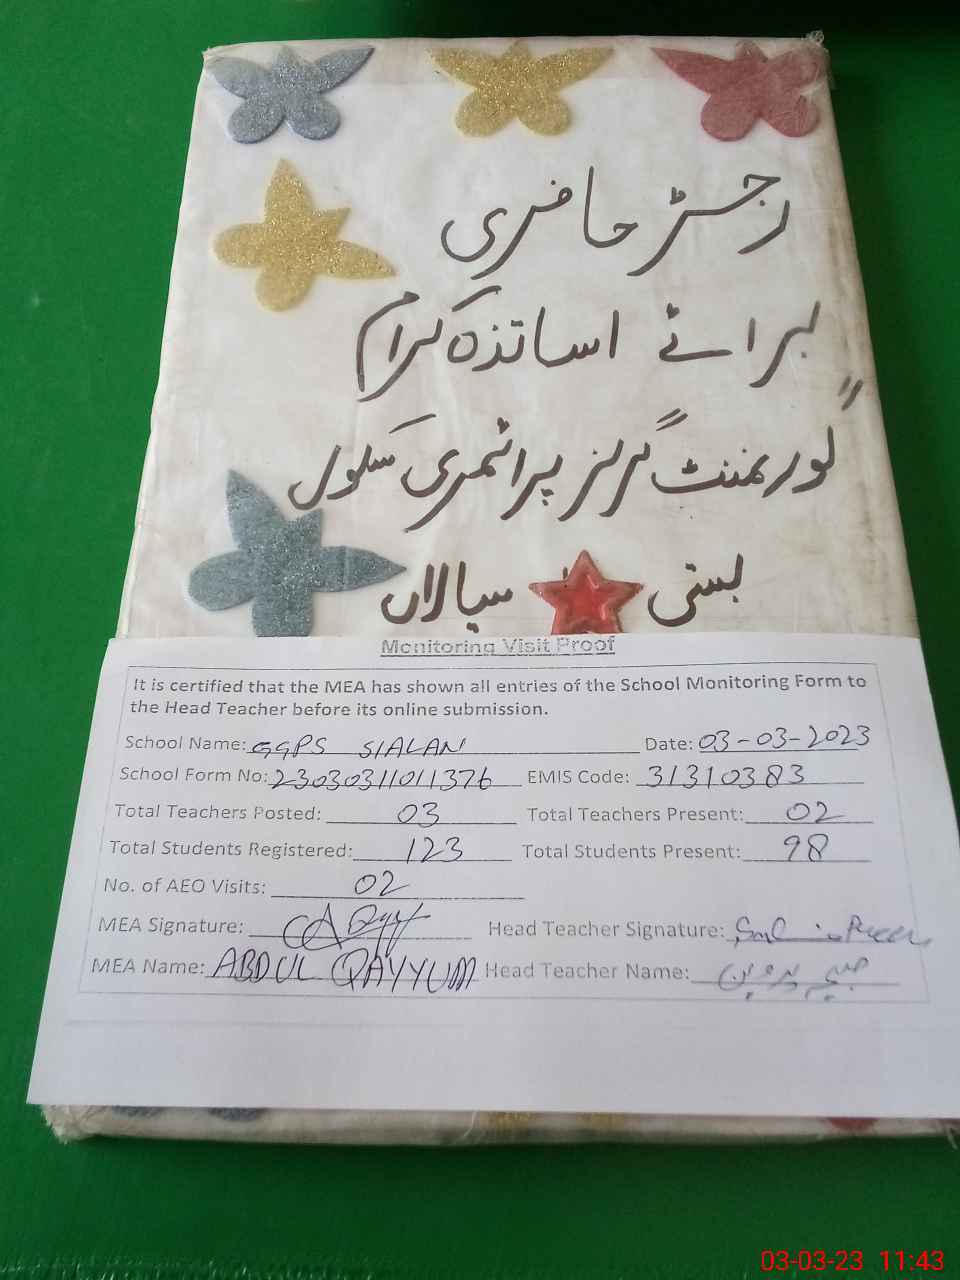 رجسڑ حاضری
برائے اساتذہ کرام
"گورنمنٹ گرلز پرائمری سکول
بستی سیالاں
Monitoring Visit Proof
It is certified that the MEA has shown all entries of the School Monitoring Form to
the Head Teacher before its online submission.
School Name: GGPS SIALAN Date: 03-03-2023
School Form No: 23030311011376 EMIS Code: 31310383
Total Teachers Posted: 03 Total Teachers Present: 02
Total Students Registered: 123 Total Students Present: 98
No. of AEO Visits: 02
MEA Signature: Head Teacher Signature:
MEA Name: ABDUL QAYYUM Head Teacher Name: پروین
03-03-23 11:43